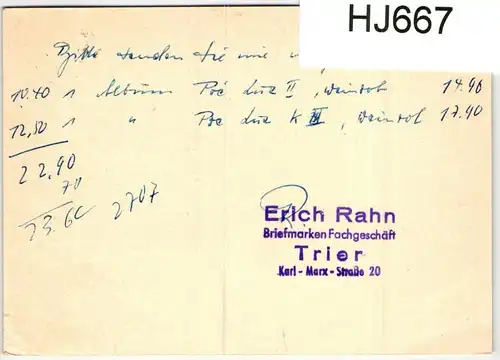 HJ667
Bitte senden Sie mir
10.40 1 Album Poč Lux II, weinrot 14.90
12,50 1 " Poč Lux K III, weinrot 17.90
22,90
70
23.60 2707
Erich Rahn
Briefmarken Fachgeschäft
Trier
Karl-Marx-Straße 20